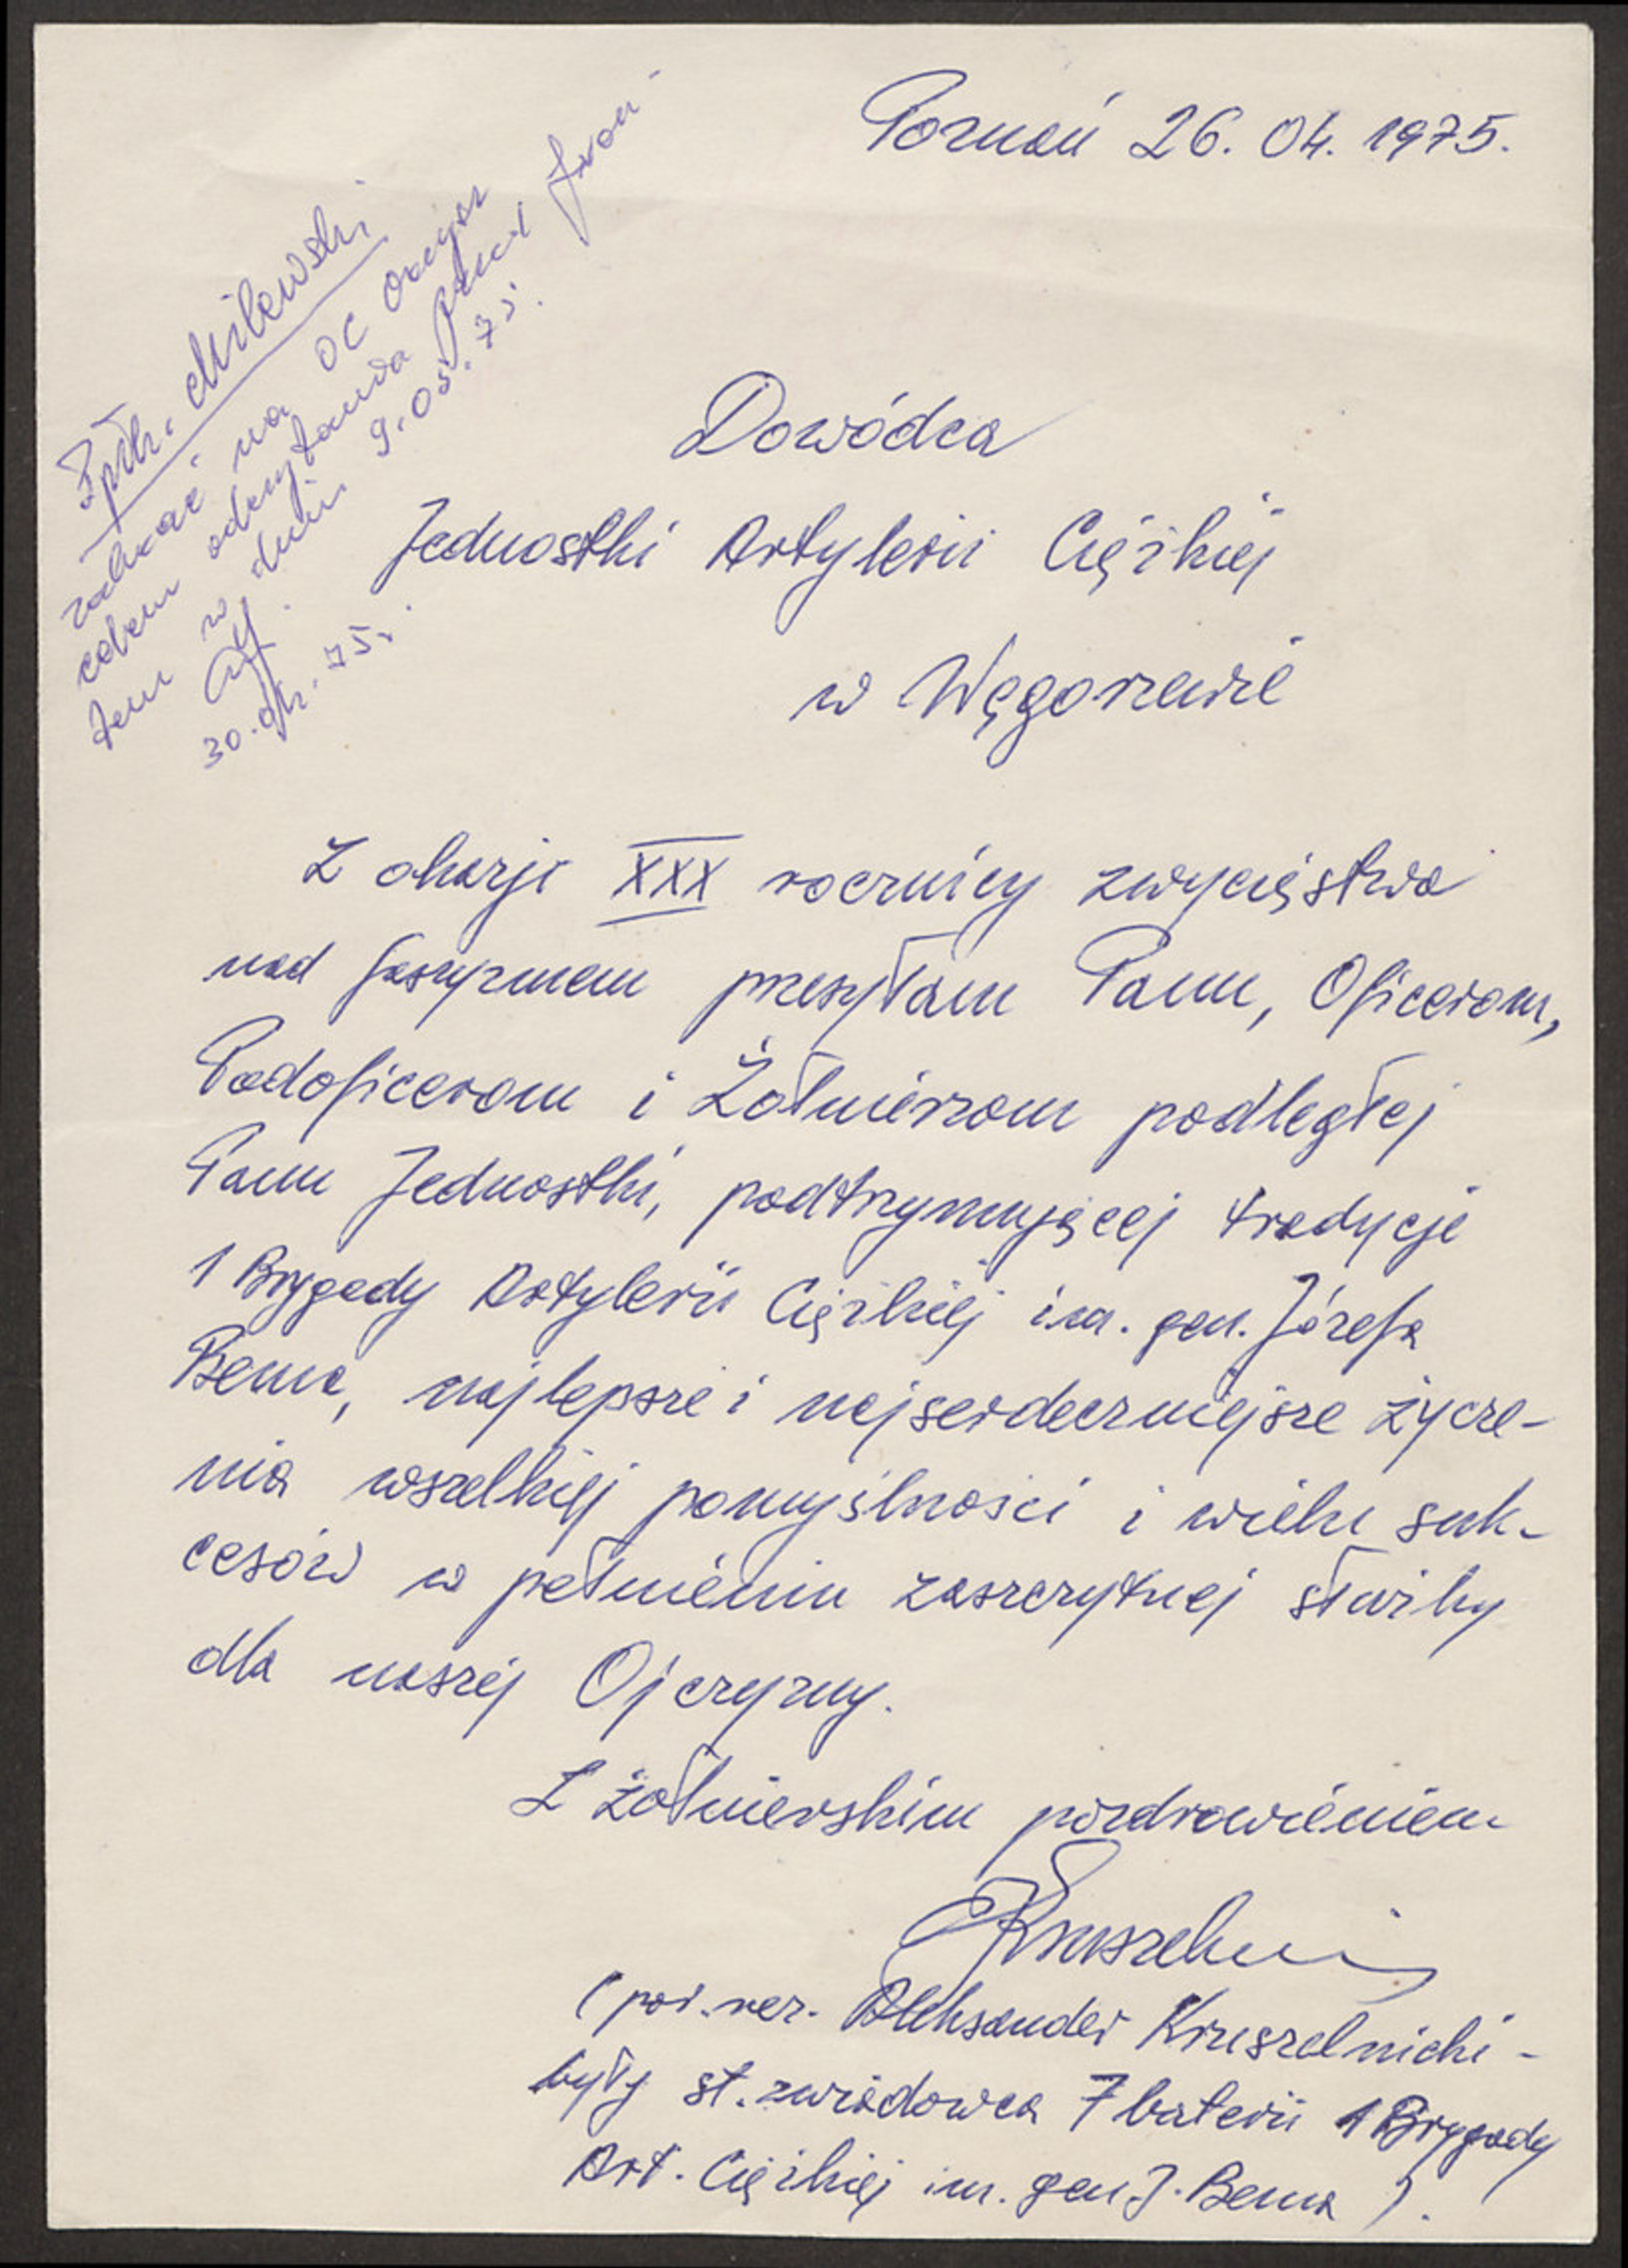 Poznań 26. 04. 1975.
Ppłk. Milewski
na OC
celem odczytania przed fron-
tem w dniu 9.05.75.
30.04.75r.
Dowódca
Jednostki Artylerii Ciężkiej
w Węgorzewie
Z okazji XXX rocznicy zwycięstwa
nad faszyzmem przesyłam Panu, Oficerom,
Podoficerom i Żołnierzom podległej
Panu Jednostki, podtrzymującej tradycje
1 Brygady Artylerii Ciężkiej im. gen. Józefa
Bema, najlepsze i najserdeczniejsze życze-
nia wszelkiej pomyślności i wielu suk-
cesów w pełnieniu zaszczytnej służby
dla naszej Ojczyzny.
Z żołnierskim pozdrowieniem
(por. rez. Aleksander Kruszelnicki -
były st. zwiadowca 7 baterii 1 Brygady
Art. Ciężkiej im. gen J. Bema ).